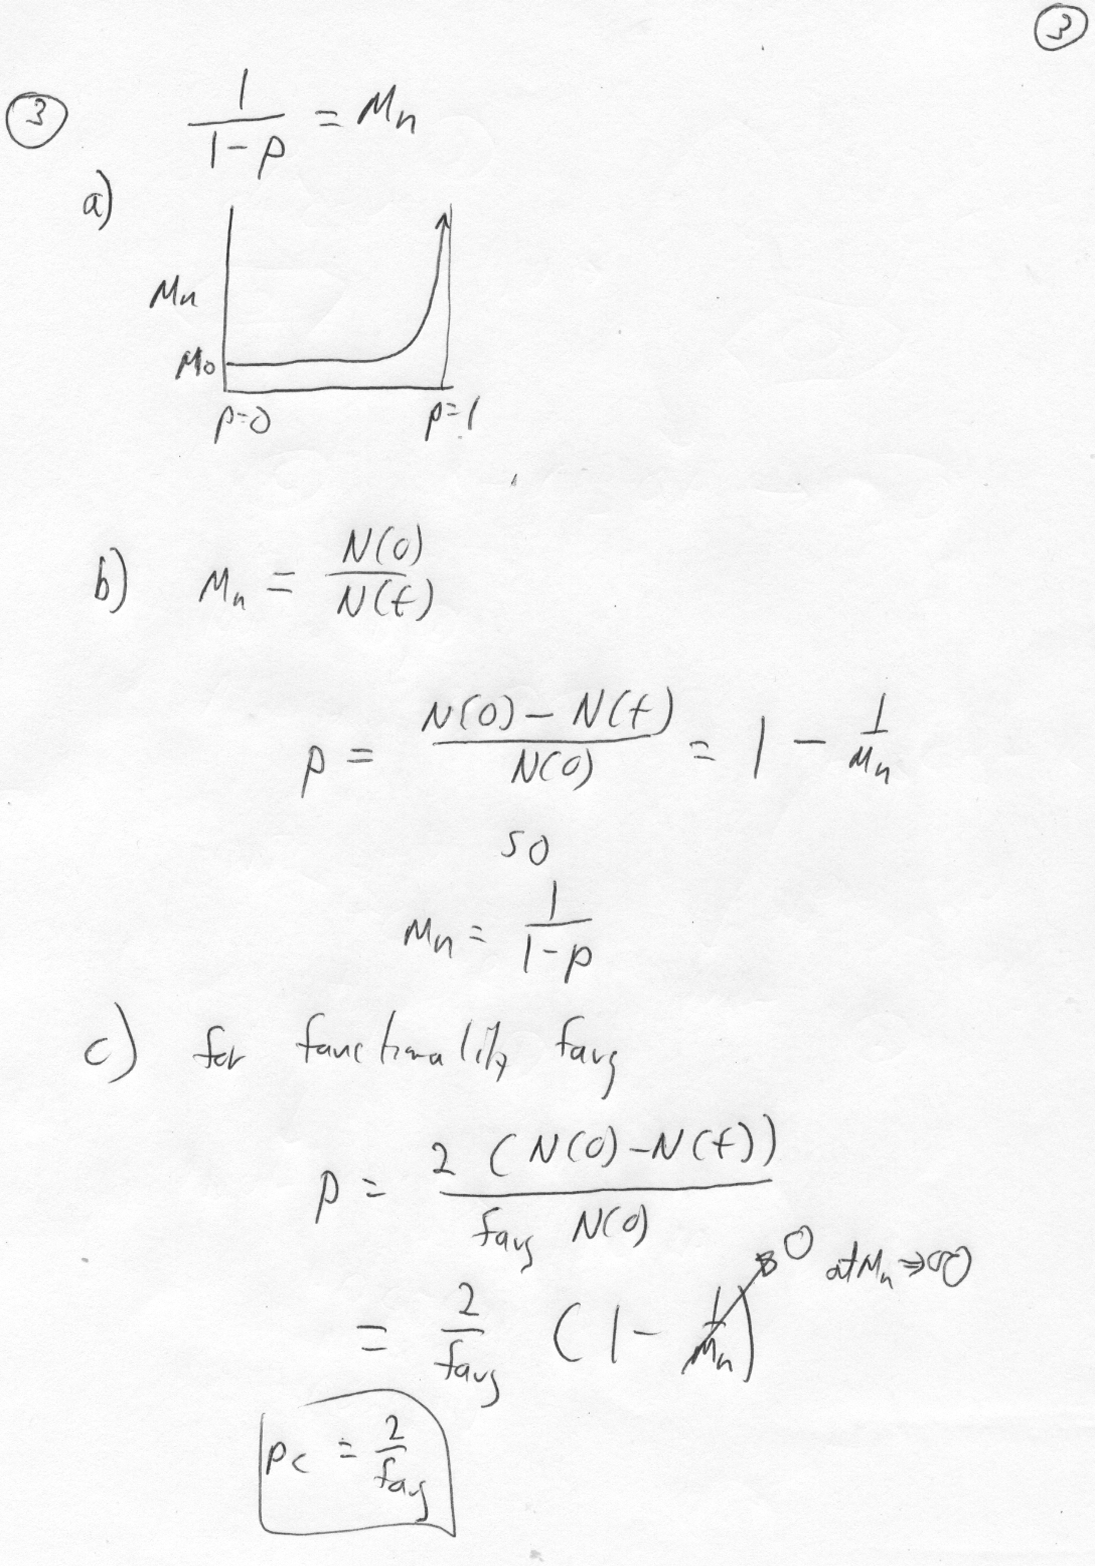 3
3
1/(1-p) = Mn
a)
Mn
Mo
p=0 p=1
b) Mn = N(0)/N(t)
p = (N(0) - N(t))/N(0) = 1 - 1/Mn
so
Mn = 1/(1-p)
c) for functionality favg
p = 2 (N(0)-N(t))/(favg N(0))
= 2/favg (1 - 1/Mn) 0 at Mn ⇒ ∞
pc = 2/favg